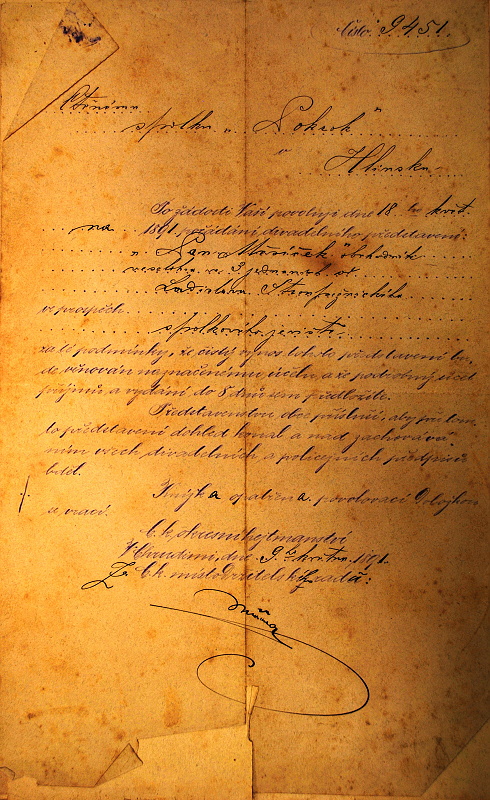 Číslo: 9451.
spolku „Pokrok"
v
Hlinsku
Ku žádosti Vaší povoluji dne 18. kvě
na 1891 pořádání divadelního představení:
„Pan Měsíček" obchodník
veselohra ve 3 jednáních od
Ladislava Stroupežnického
ve prospěch
spolkového jeviště
za té podmínky, že čistý výnos tohoto představení bu
de věnován naznačenému účelu, a že podrobný účet
příjmů a vydání do 8 dnů sem předložíte.
Představenstvu obce přísluší, aby při tom
to představení dohled konal a nad zachovává
ním všech divadelních a policejních předpisů
bděl.
Knížka opatřena povolovací doložkou
se vrací.
C. k. okresní hejtmanství
V Chrudimi, dne 9. května 1891.
C. k. místodržitelský rada: